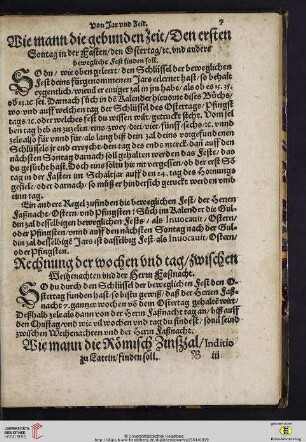 Von Jar vnd Zeit. 9
Wie mann die gebunden zeit/ Den ersten
Sontag in der Fasten/ den Ostertag/ꝛc. vnd andere
bewegliche Fest finden soll.
SO du/ wie oben geleret/ den Schlüssel der beweglichen
Fest deins fürgenommenen Jars erlernet hast/ so behalt
eygentlich/ wieuil er einiger zal in jm habe/ als ob es 15. 35.
ob 23. ꝛc sei. Darnach
wo vnd auff welchen tag der Schlüssel des Ostertags/ Pfingst
tags ꝛc. oder welches fest du wissen wilt/ getruckt steht. Vom sel
ben tag heb an zuzelen/ eins/ zwey/ drei/ vier/ fünff/ sechs ꝛc. vnd
zele also für vnnd für/ als lang biß dein zal deins vorgefunden
Schlüssels ein end erreicht/ den tag des ends merck/ dañ auff den
nächsten Sontag darnach soll gehalten werden das Fest/ dar
du gesücht hast. Doch
tag in der Fasten im Schaltjar auff den 24. tag des Hornungs
gefiele/ oder darnach/ so muß er hindersich geruckt werden/ vmb
einn tag.
Ein andere Regel zufinden die beweglichen Fest/ der Herren
Faßnacht/ Ostern/ vnd Pfingsten: Sůch im Kalender die Gul-
din zal desselbigen beweglichen Fests/ als Inuocauit/ Ostern/
oder Pfingsten/ vnnd auff den nächsten Sontag nach der Gul-
din zal desselbigē Jars ist dasselbig Fest/ als Inuocauit/ Ostern/
oder Pfingsten.
Rechnung der wochen vnd tag/ zwischen
Weihenachten vnd der Herrn Faßnacht.
SO du durch den Schlüssel der beweglichen Fest den O-
stertag funden hast/ so bistu gewiß/ daß der Herren Faß-
nacht 7. gantzer wochen vor dem Ostertag gehaltē wirt/
Deßhalb zele also dann von der Herrn Faßnacht tag an/ biß auff
den Christag/ vnd wie vil wochen vnd tag du findest/ souil seind
zwischen Weihenachten vnd der Herrn Faßnacht.
Wie man die Römisch Zinßzal/ Indictio
zu Latein/ finden soll.
B iij